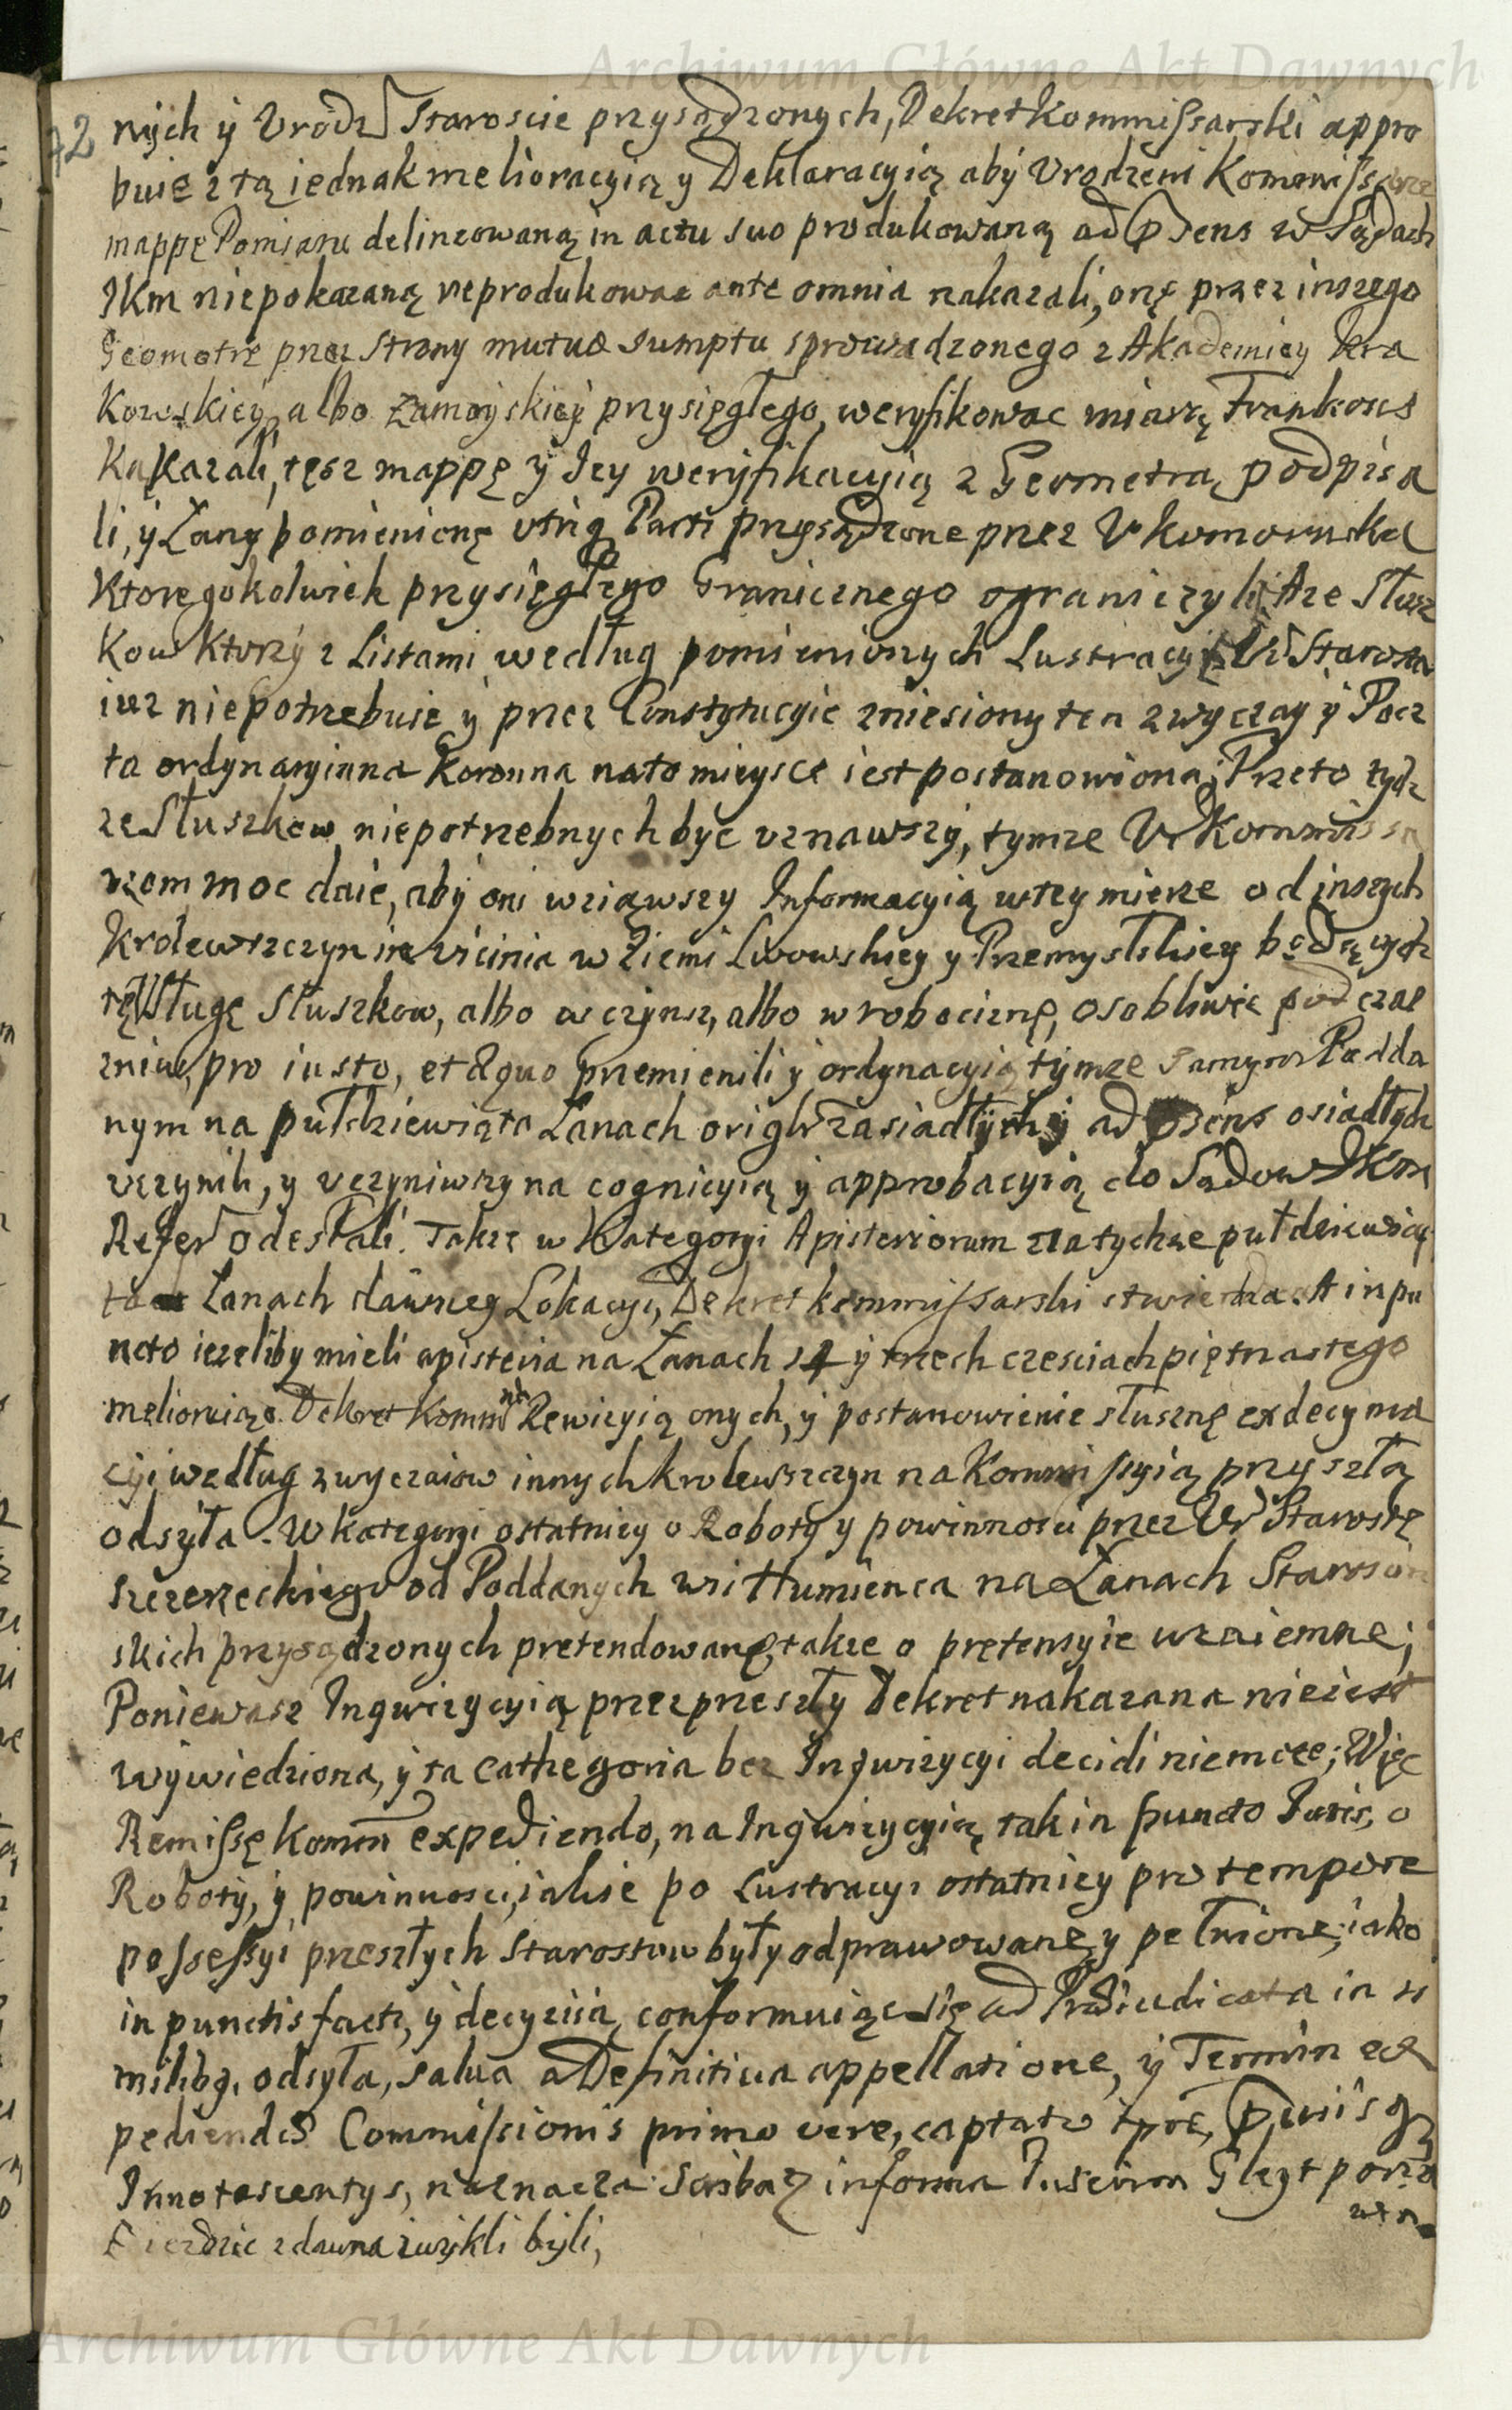 Archiwum Główne Akt Dawnych
72
nych y Vrodz Staroscie przysądzonych, Dekret Kommissarski appro
buie z tą iednak melioracyią y Deklaracyią aby Vrodzeni Kommissarze
mappę Pomiaru delineowaną in actu suo produkowaną ad Psens w Sądach
JKm niepokazaną reprodukowac ante omnia nakazali, onę przez inszego
Geometrę przez Strony mutuo sumptu sprowadzonego z Akademiey Kra
Kowskiey, albo Zamoyskiey przysięgłego, weryfikowac miarę Frankows
Kazali, tęsz mappę y Jey weryfikacyią z Geometrą podpisa
li, y Łany pomienionę vtriq Parti przysądzone przez V Komornika
Ktoregokolwiek przysięgłego Granicznego ograniczyli. A ze Słusz
Kow Ktorzy z Listami według pomienionych Lustracyi Vr Starosta
iuz niepotrzebuie y przez Constytucyie zniesiony ten zwyczay y Pocz
ta ordynaryinna Koronna nato mieysce iest postanowiona; Przeto tych
ze Słuszkow niepotrzebnych byc vznawszy, tymze Vr Kommissa
rzom moc daie, aby oni wziąwszy Informacyią wtey mierze od inszych
Krolewszczyn in vicinia w Ziemi Lwowskiey y Przemyslskiey będących
tę Vsługę Słuszkow, albo w czynsz, albo w robociznę, osobliwie podczas
zniw, pro iusto, et æquo przemienili y ordynacyią tymze samym Podda
nym na pułdziewiąta Łanach origlr zasiadłych y ad Psens osiadłych
vczynili, y vczyniwszy na cognicyią y approbacyią do Sądow JKm
Refer odesłali. Takze w Kategoryi Apisteriorum na tychze pułdziewią
ta Łanach dawney Lokacyi, Dekret kommissarski stwierdza. A in pu
ncto iezeliby mieli apisteria na Łanach 14 y trzech czesciach piętnastego
melioruiąc Dekret Komm na Rewizyią onych, y postanowienie słusznę ex decyma
cyi według zwyczaiow innych krolewszczyn na Kommissyią przyszłą
odsyła. W kategoryi ostatniey o Roboty y powinnosci przez Vr Starostę
szczerzeckiego od Poddanych wsi Humienca na Łanach Starosciń
skich przysądzonych pretendowanę, takze o prętensyie wzaiemne;
Poniewasz Inqwizycyią przez przeszły Dekret nakazana nieiest
wywiedziona, y ta cathegoria bez Inqwizycyi decidi niemoze; Więc
Remissę komm expediendo, na Inqwizycyią tak in puncto Juris, o
Roboty, y powinnosci, iakie po Lustracyi ostatniey pro tempore
possessyi przeszłych Starostow były odprawowanę y pełnione, iako
in punctis facti, y decyzyią, conformuiąc się ad Præiudicata in si
milibq, odsyła, salva a Definitiva appellatione, y Termin ex
pediendæ Commissionis primo vere, captato tpre, Pviis q
Innotescentys, naznacza. Scribaz informa Juscirm
zdawna zwykli byli,
Archiwum Główne Akt Dawnych